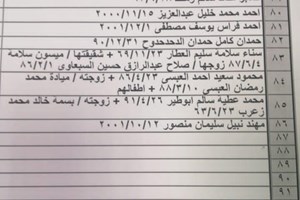 ٨٠ احمد محمد خليل عبدالعزيز ٢٠٠٠/١١/١٥
٨١ احمد فراس يوسف مصطفى ٢٠٠١/١٢/١
٨٢ حمدان كامل حمدان الدحدحدوح ٩٠/١٢/٣١
٨٣ سناء سلامه سليم العطار ٦٩/١١/٢٣ + شقيقتها / ميسون سلامة
٨٧/٦/٤ زوجها / صلاح عبدالرازق حسين السبعاوي ٨٦/٢/١
٨٤ محمود سعيد احمد العبسي ٨٦/٤/٢٣ + زوجته / ميادة محمد
رمضان العبسي ٨٨/٣/١٠ + اطفالهم
٨٥ محمد عطية سالم ابوطير ٩١/٤/٢٦ + زوجته / بسمة خالد محمد
زعرب ٦٣/٦/٢٣
٨٦ مهند نبيل سليمان منصور ٢٠٠١/١٠/١٢
٨٧
٨٨
٨٩
٩٠
٩١